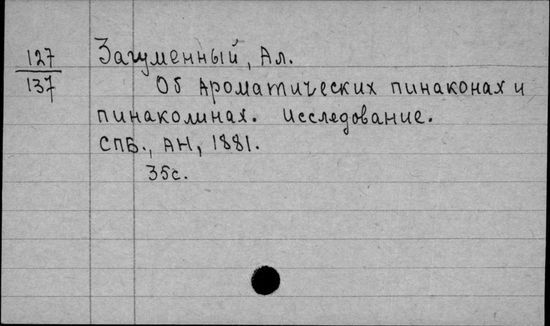 127
137
Загуменный, Ал.
Об ароматических пинаконах и
пинаколинах. Исследование.
СПБ., АН, 1881.
35с.